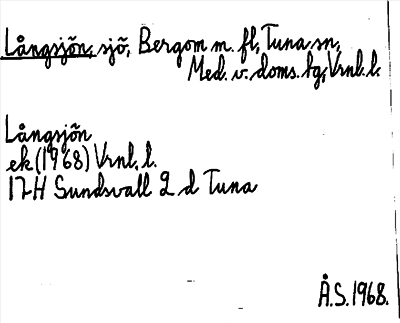 Långsjön, sjö, Bergom m. fl, Tuna sn,
Med. v. doms. hg, Vrnl. l.
Långsjön
ek (1968) Vrnl. l.
17H Sundsvall 2 d Tuna
Å.S. 1968.